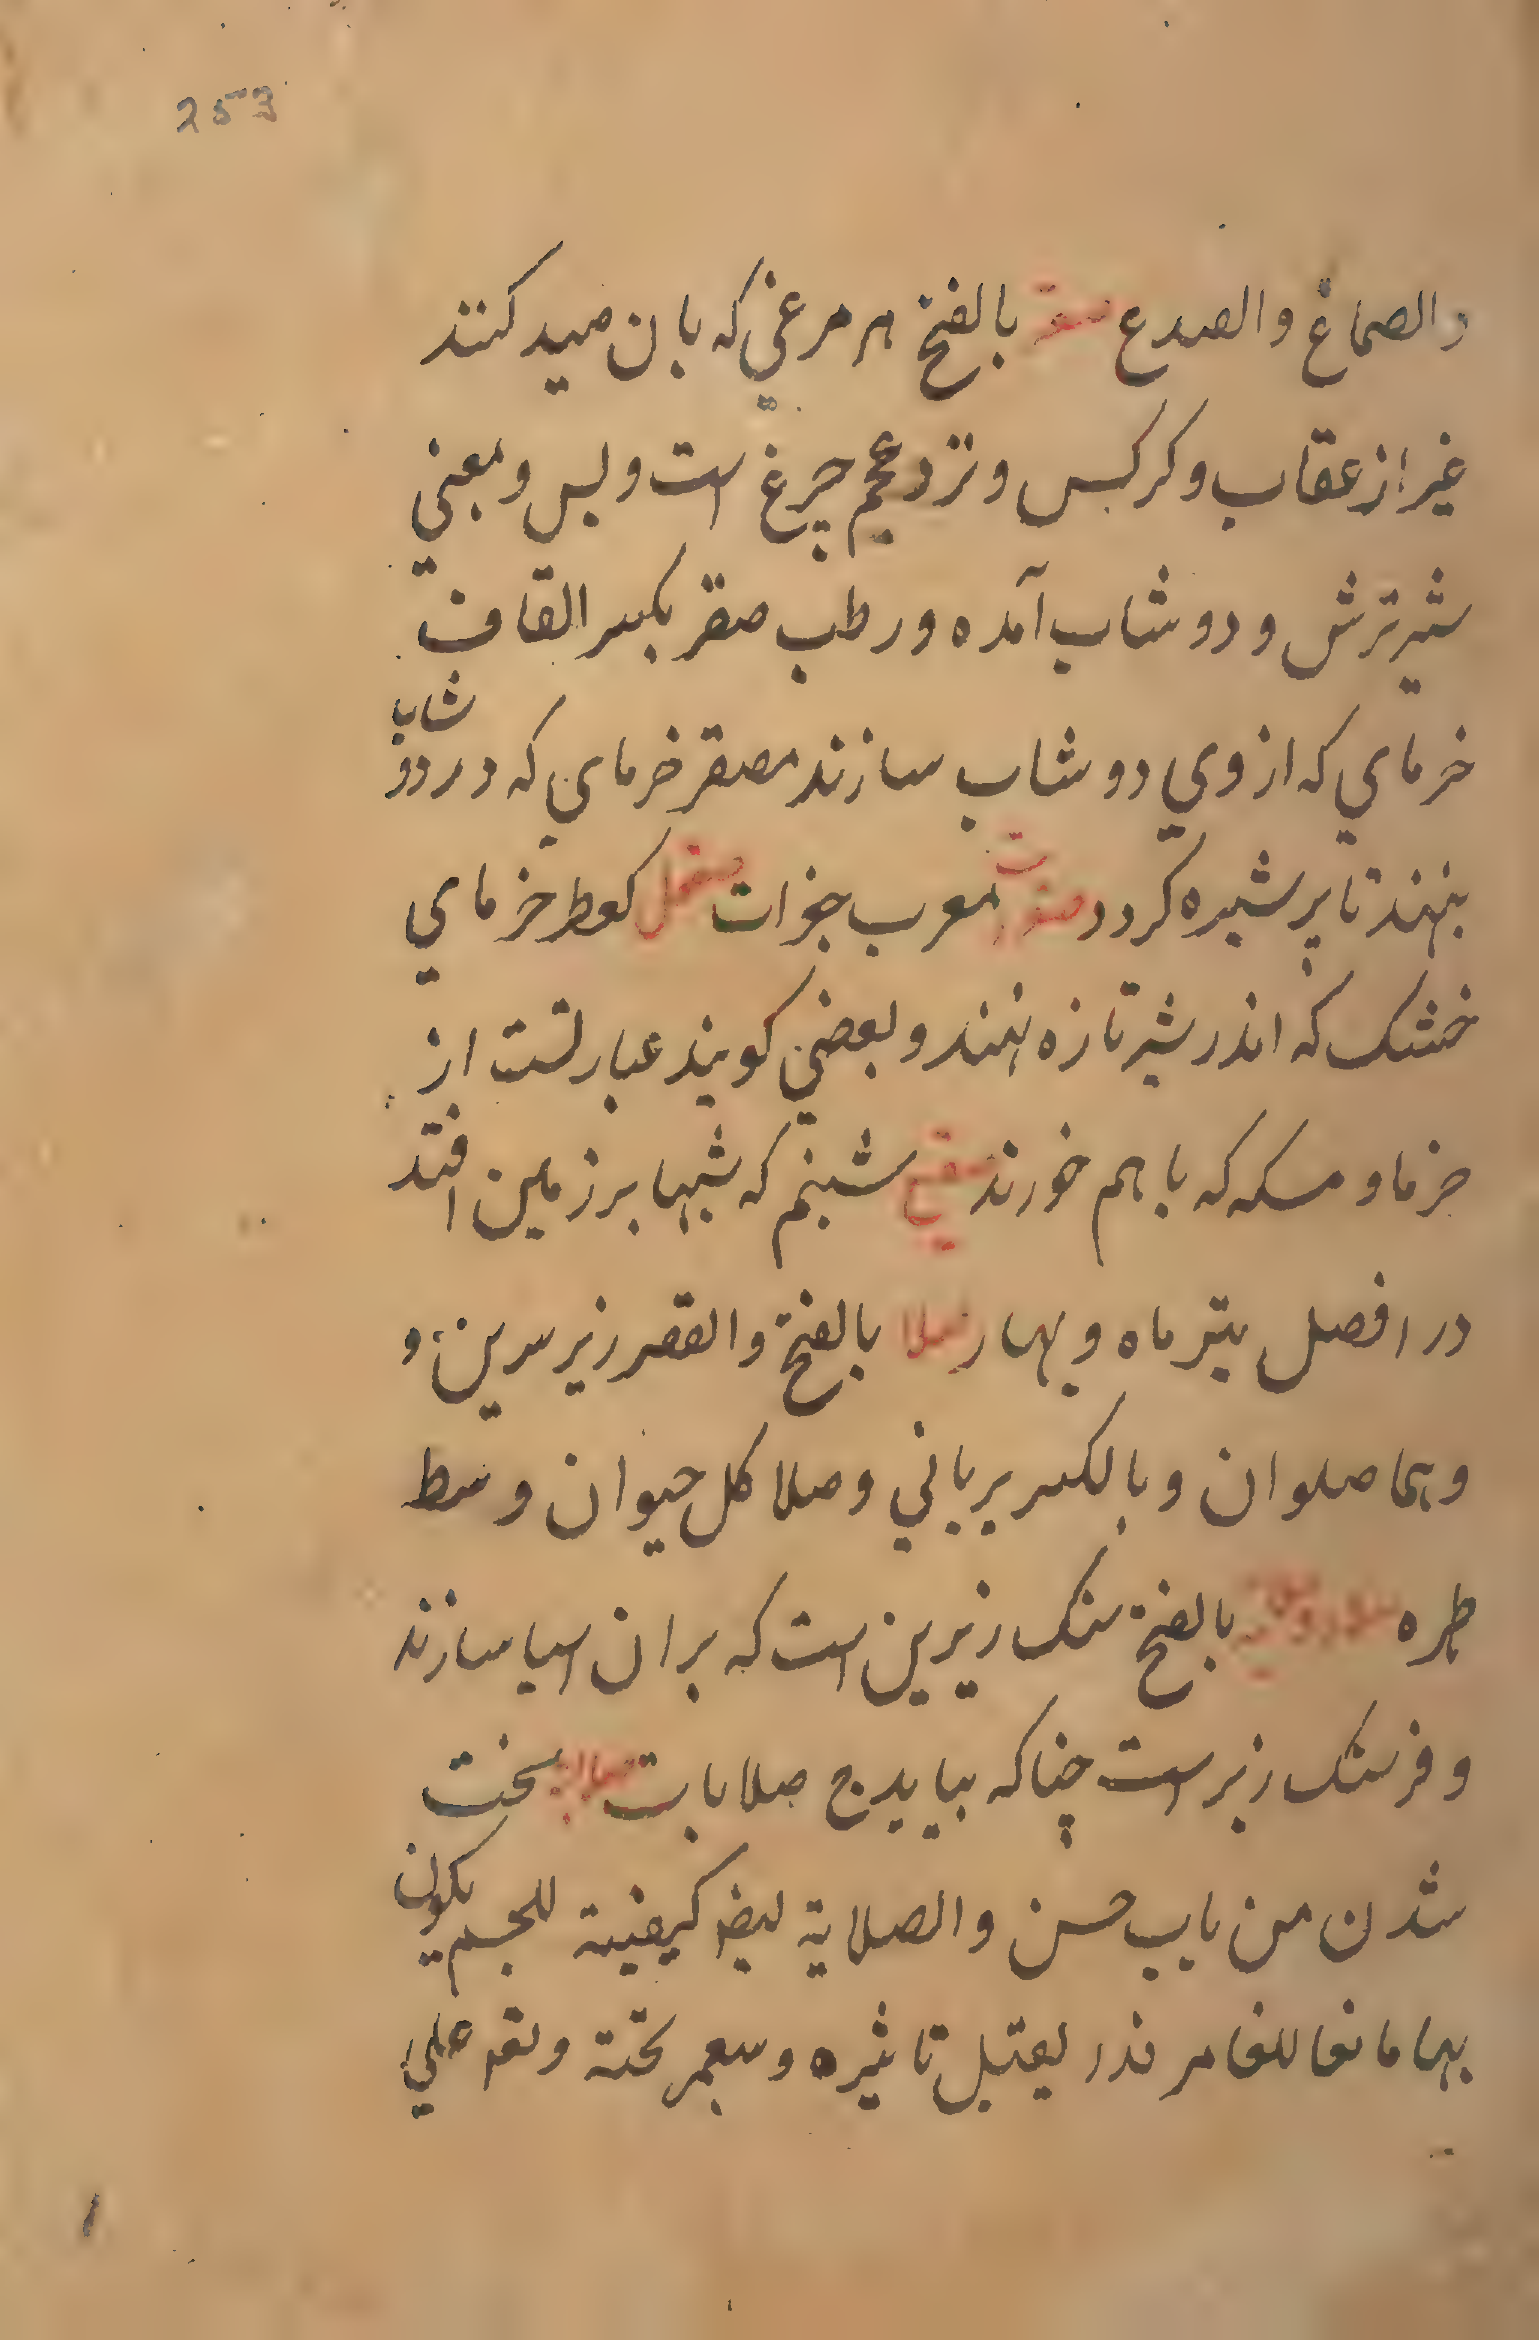 253
والصماغ والصدع صقر بالفتح هر مرغي که بان صيد کنند
غير از عقاب و کرکس و نزد عجم چرغ است و بس و بمعني
شير ترش و دوشاب آمده و رطب صقر بکسر القاف
خرماي که از وي دوشاب سازند مصقر خرماي که در دوشاب
بنهند تا پر شيره کردد معرب جغرات صقعل خرماي
خشک که اندر شير تازه نهند و بعضي کويند عبارتست از
خرما و مسکه که با هم خورند صقيع شبنم که شبها بر زمين افتد
در فصل تير ماه و بهار صلا بالفتح والقصر زير سرين و
وهما صلوان و بالکسر برياني و صلا کل حيوان وسط
ظهره بالفتح سنک زيرين است که بران اسيا سازند
و فرسنک زبر است چناکه بيايد ج صلابات صلابة سخت
شدن من باب حسن والصلابة ايضا کيفية للجسم يکون
بها مانعا للغامر فلا يقبل تاثيره تحته علي